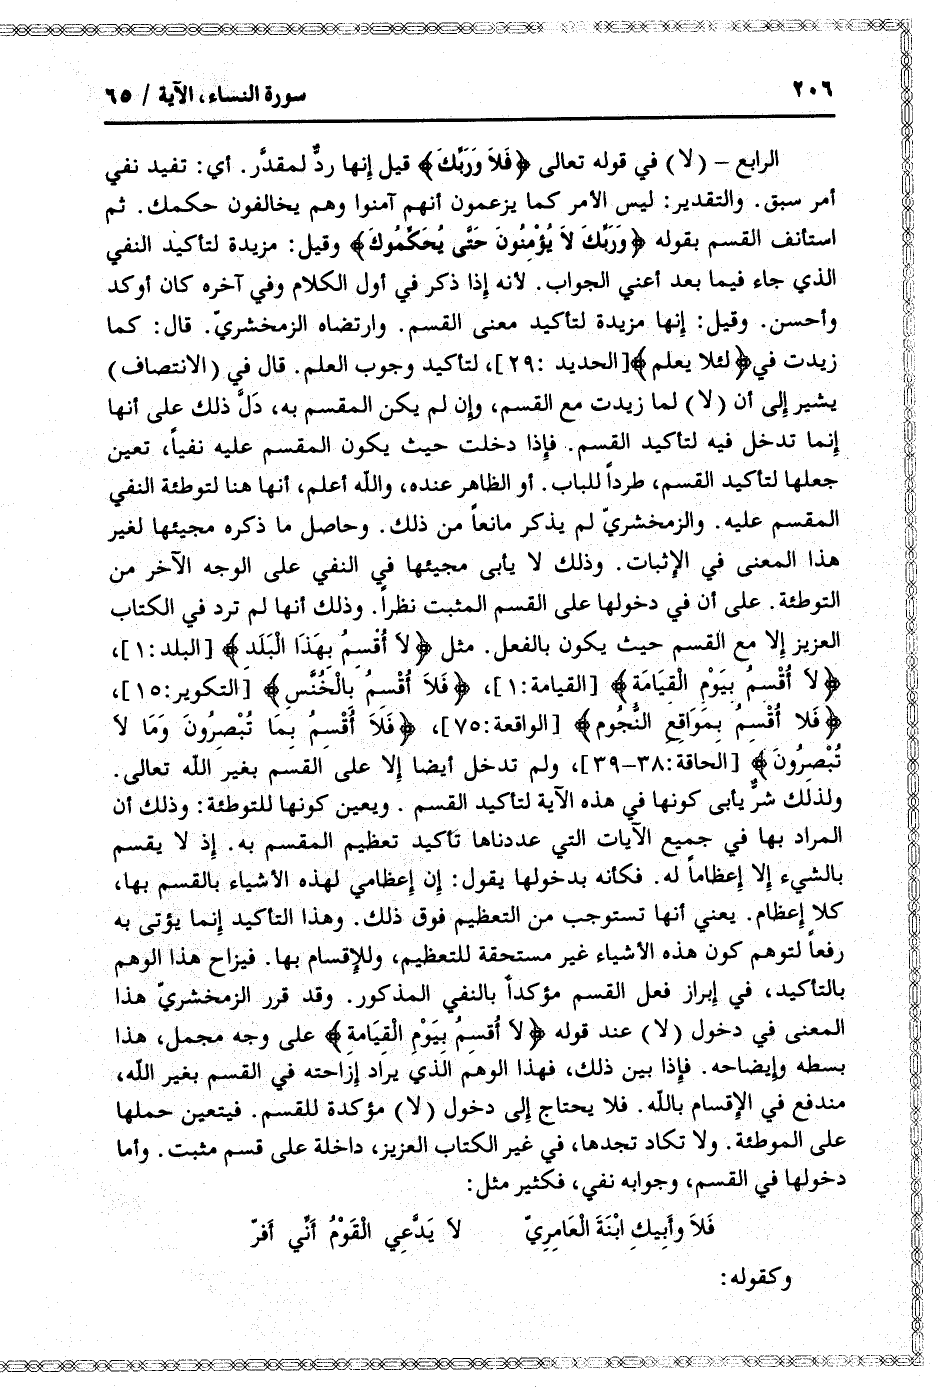 ٢٠٦
سورة النساء، الآية / ٦٥
الرابع - (لا) في قوله تعالى ﴿فَلاَ وَرَبِّكَ﴾ قيل إنها ردٌّ لمقدَّر. أي: تفيد نفي
أمر سبق. والتقدير: ليس الأمر كما يزعمون أنهم آمنوا وهم يخالفون حكمك. ثم
استأنف القسم بقوله ﴿وَرَبِّكَ لاَ يُؤْمِنُونَ حَتَّى يُحَكِّمُوكَ﴾ وقيل: مزيدة لتأكيد النفي
الذي جاء فيما بعد أعني الجواب. لأنه إذا ذكر في أول الكلام وفي آخره كان أوكد
وأحسن. وقيل: إنها مزيدة لتأكيد معنى القسم. وارتضاه الزمخشريّ. قال: كما
زيدت في﴿لئلا يعلم﴾[الحديد :٢٩]، لتأكيد وجوب العلم. قال في (الانتصاف)
يشير إلى أن (لا) لما زيدت مع القسم، وإن لم يكن المقسم به، دَلَّ ذلك على أنها
إنما تدخل فيه لتأكيد القسم. فإذا دخلت حيث يكون المقسم عليه نفياً، تعين
جعلها لتأكيد القسم، طرداً للباب. أو الظاهر عنده، والله أعلم، أنها هنا لتوطئة النفي
المقسم عليه. والزمخشريّ لم يذكر مانعاً من ذلك. وحاصل ما ذكره مجيئها لغير
هذا المعنى في الإثبات. وذلك لا يأبى مجيئها في النفي على الوجه الآخر من
التوطئة. على أن في دخولها على القسم المثبت نظراً. وذلك أنها لم ترد في الكتاب
العزيز إلا مع القسم حيث يكون بالفعل. مثل ﴿لاَ أُقْسِمُ بِهَذَا الْبَلَدِ﴾ [البلد:١]،
﴿لاَ أُقْسِمُ بِيَوْمِ الْقِيَامَةِ﴾ [القيامة:١]، ﴿فَلاَ أُقْسِمُ بِالْخُنَّسِ﴾ [التكوير:١٥]،
﴿فَلا أُقْسِمُ بِمَوَاقِعِ النُّجُومِ﴾ [الواقعة:٧٥]، ﴿فَلاَ أُقْسِمُ بِمَا تُبْصِرُونَ وَمَا لاَ
تُبْصِرُونَ﴾ [الحاقة:٣٨-٣٩]، ولم تدخل أيضا إلا على القسم بغير الله تعالى.
ولذلك شرٌّ يأبى كونها في هذه الآية لتأكيد القسم . ويعين كونها للتوطئة: وذلك أن
المراد بها في جميع الآيات التي عددناها تأكيد تعظيم المقسم به. إذ لا يقسم
بالشيء إلا إعظاماً له. فكأنه بدخولها يقول: إن إعظامي لهذه الأشياء بالقسم بها،
كلا إعظام. يعني أنها تستوجب من التعظيم فوق ذلك. وهذا التأكيد إنما يؤتى به
رفعاً لتوهم كون هذه الأشياء غير مستحقة للتعظيم، وللإقسام بها. فيزاح هذا الوهم
بالتأكيد، في إبراز فعل القسم مؤكداً بالنفي المذكور. وقد قرر الزمخشريّ هذا
المعنى في دخول (لا) عند قوله ﴿لاَ أُقسِمُ بِيَوْمِ الْقِيَامةِ﴾ على وجه مجمل، هذا
بسطه وإيضاحه. فإذا بين ذلك، فهذا الوهم الذي يراد إزاحته في القسم بغير الله،
مندفع في الإقسام بالله. فلا يحتاج إلى دخول (لا) مؤكدة للقسم. فيتعين حملها
على الموطئة. ولا تكاد تجدها، في غير الكتاب العزيز، داخلة على قسم مثبت. وأما
دخولها في القسم، وجوابه نفي، فكثير مثل:
فَلاَ وأَبِيكِ ابْنَةَ الْعَامِرِيّ لاَ يَدَّعِي الْقَوْمُ أَنِّي أَفرّ
وكقوله: